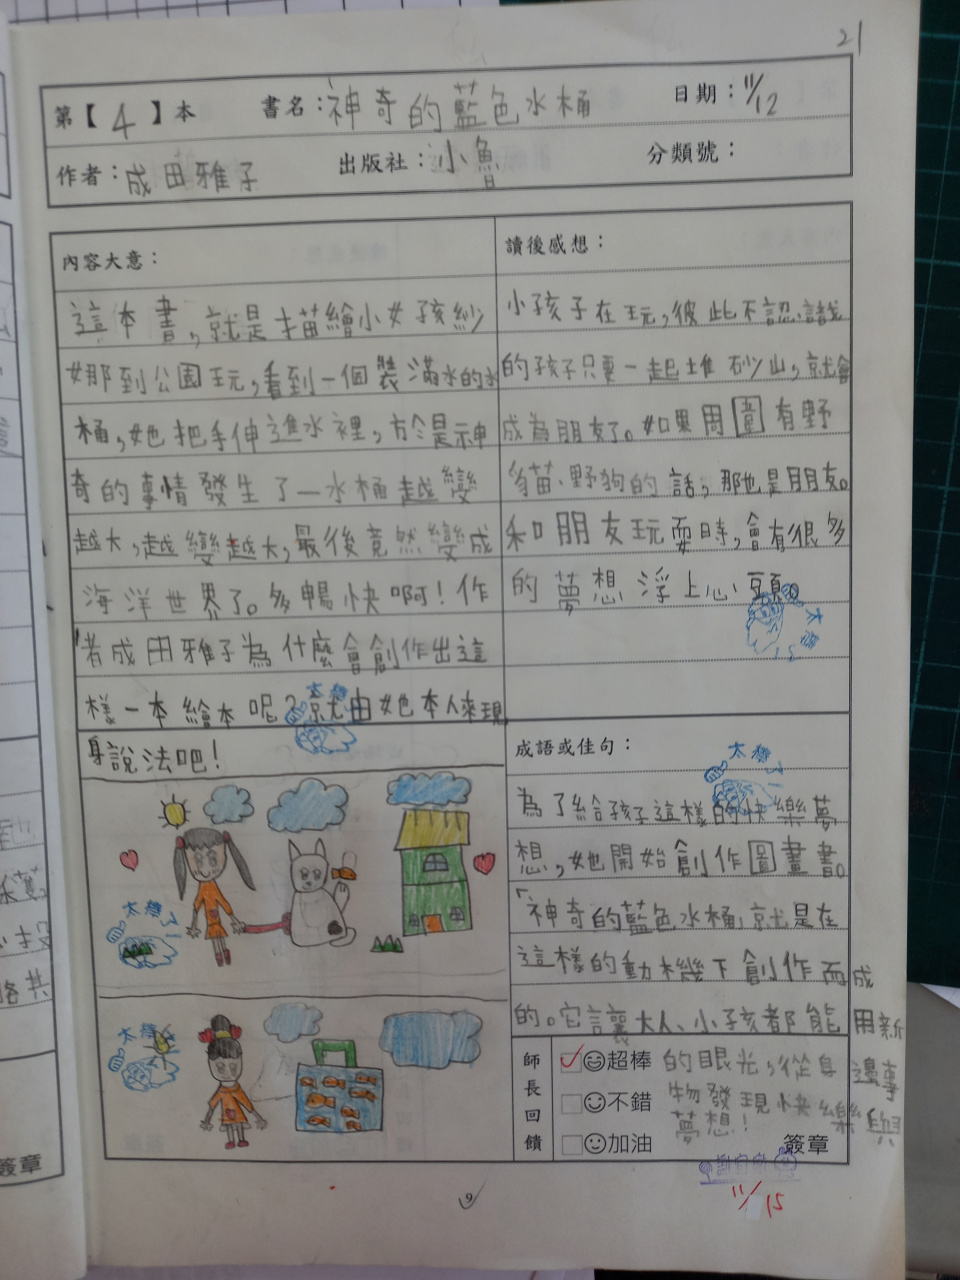 21
第【4】本 書名：神奇的藍色水桶 日期：11/12
作者：成田雅子 出版社：小魯 分類號：
內容大意：
這本書，就是描繪小女孩紗
娜到公園玩，看到一個裝滿水的水
桶，她把手伸進水裡，於是神
奇的事情發生了—水桶越變
越大，越變越大，最後竟然變成
海洋世界了。多暢快啊！作
者成田雅子為什麼會創作出這
樣一本繪本呢？就由她本人來現
身說法吧！
讀後感想：
小孩子在玩，彼此不認識
的孩子只要一起堆砂山，就會
成為朋友了。如果周圍有野
貓、野狗的話，那也是朋友。
和朋友玩耍時，會有很多
的夢想浮上心頭。
太棒了
太棒了
成語或佳句：
太棒了
為了給孩子這樣的快樂夢
想，她開始創作圖畫書。
「神奇的藍色水桶」就是在
這樣的動機下創作而成
的。它讓大人、小孩都能用新
的眼光，從身邊事
物發現快樂與
夢想！
太棒了
太棒了
師長回饋
超棒
不錯
加油
簽章
11/15
9
簽章